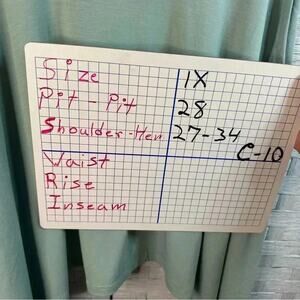 Size 1X
Pit - Pit 28
Shoulder-Hem 27-34
C-10
Waist
Rise
Inseam